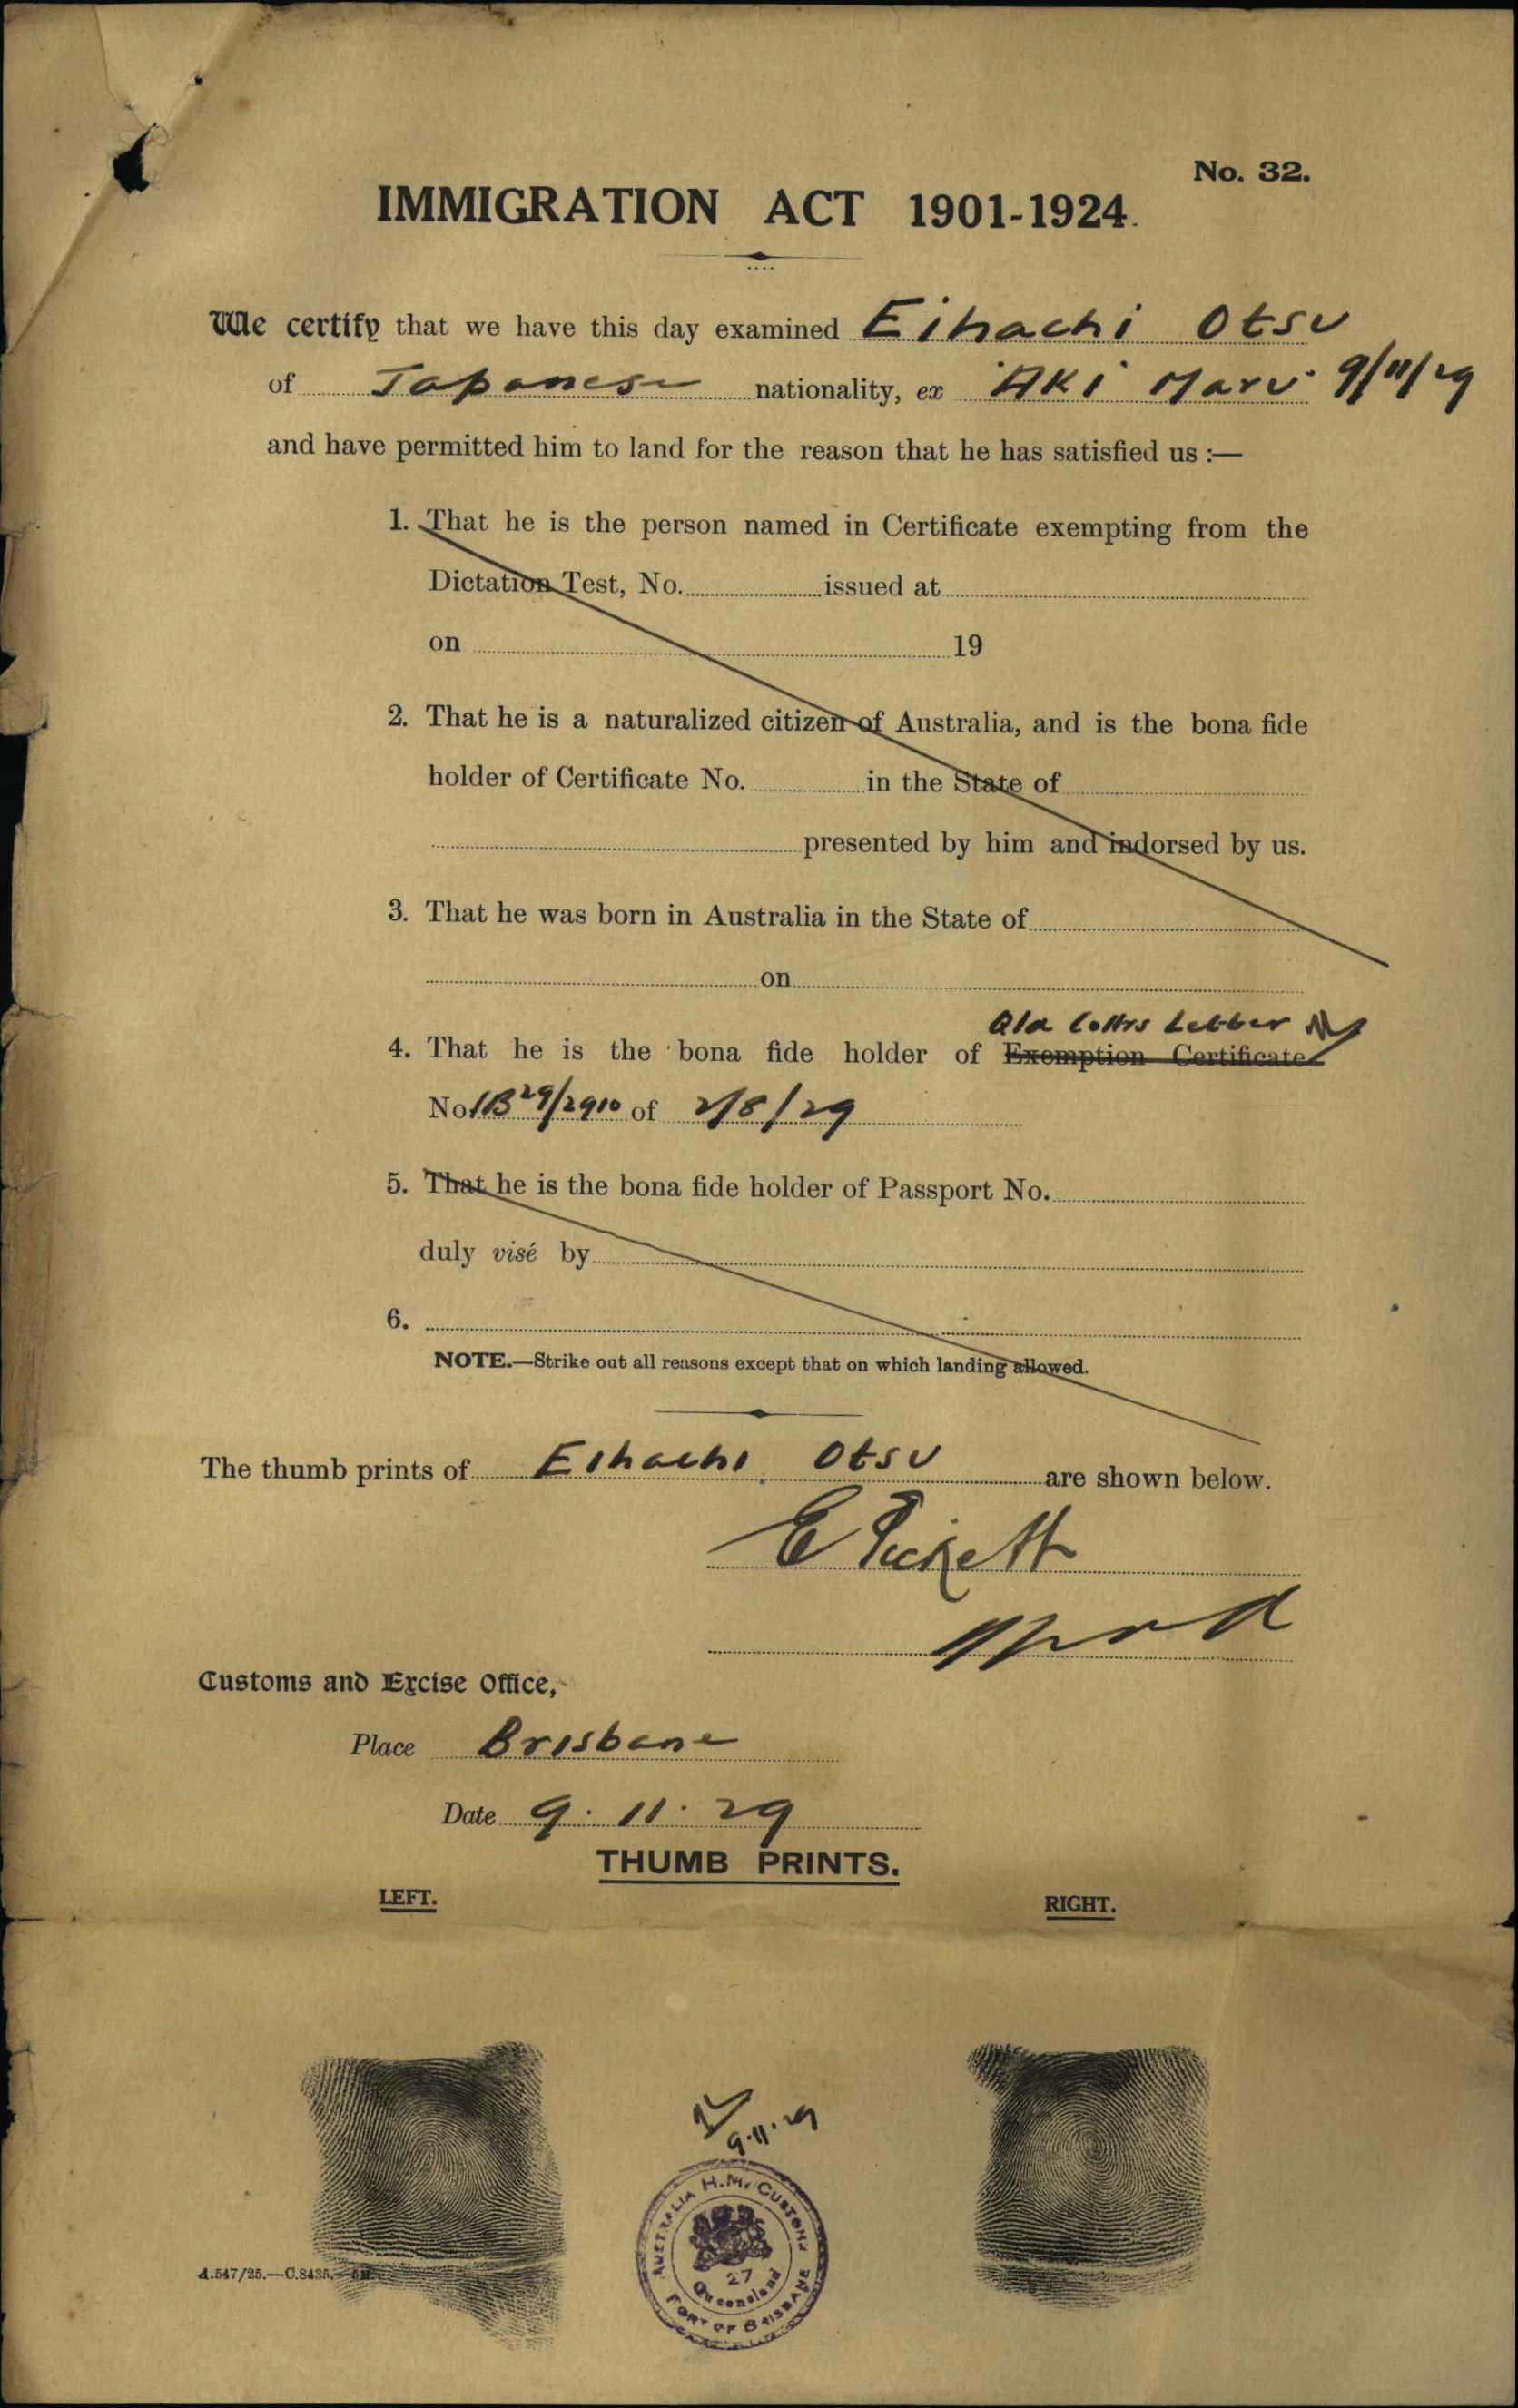 No. 32.
IMMIGRATION ACT 1901-1924.
We certify that we have this day examined Eihachi Otsu
of Japanese nationality, ex "Aki Maru" 9/11/29
and have permitted him to land for the reason that he has satisfied us :—
1. That he is the person named in Certificate exempting from the
Dictation Test, No. issued at
on 19
2. That he is a naturalized citizen of Australia, and is the bona fide
holder of Certificate No. in the State of
presented by him and indorsed by us.
3. That he was born in Australia in the State of
on
Qld Collrs Letter
4. That he is the bona fide holder of Exemption Certificate
No 1B29/2910 of 2/8/29
5. That he is the bona fide holder of Passport No.
duly visé by
6.
NOTE.—Strike out all reasons except that on which landing allowed.
The thumb prints of Eihachi Otsu are shown below.
E Pickett
Customs and Excise Office,
Place Brisbane
Date 9.11.29
THUMB PRINTS.
LEFT. RIGHT.
9.11.29
AUSTRALIA H.M. CUSTOMS
27
Queensland
PORT OF BRISBANE
A.547/25.—C.8435.